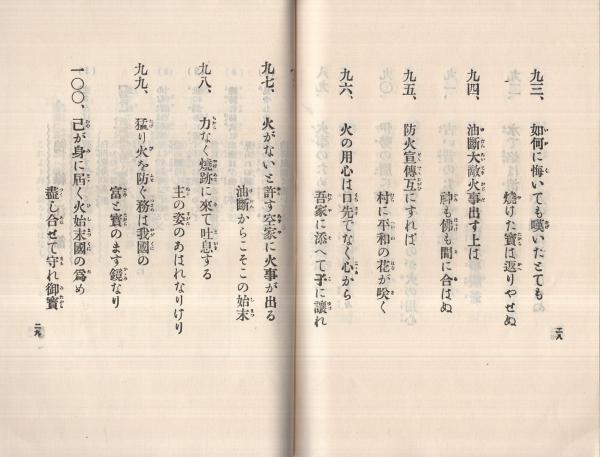 九三、如何に悔いても嘆いたとても
燒けた寶は返りやせぬ
九四、油斷大敵火事出す上は
神も佛も間に合はぬ
九五、防火宣傳互にすれば
村に平和の花が咲く
九六、火の用心は口先でなく心から
吾家に添へて子に讓れ
二八
九七、火がないと許す空家に火事が出る
油斷からこそこの始末
九八、力なく燒跡に來て吐息する
主の姿のあはれなりけり
九九、猛り火を防ぐ務は我國の
富と寶のます鏡なり
一〇〇、己が身に屆く火始末國の爲め
盡し合せて守れ御寶
二九